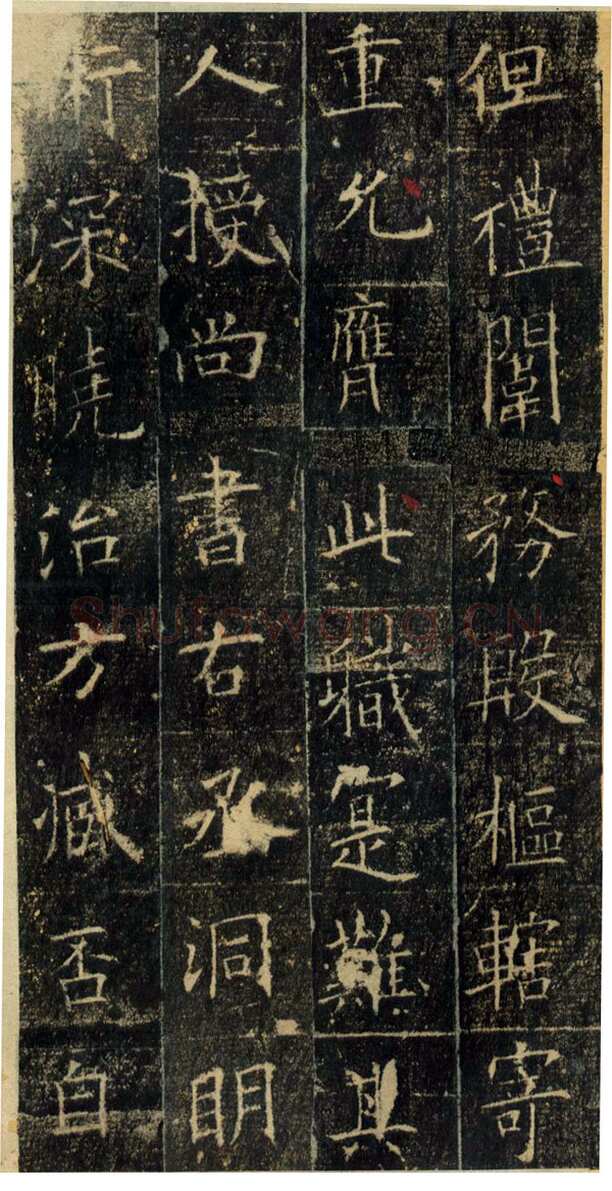 但禮闈務殷樞轄寄
重允膺此職寔難其
人授尚書右丞洞明
行深曉治方臧否自
Shufawang.CN